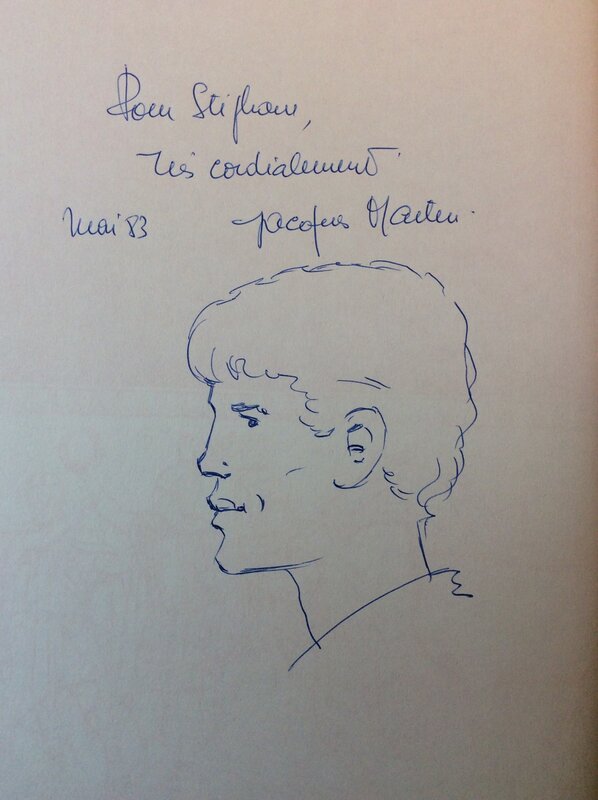 Pour Stéphane,
très cordialement
Mai 83 Jacques Martin.